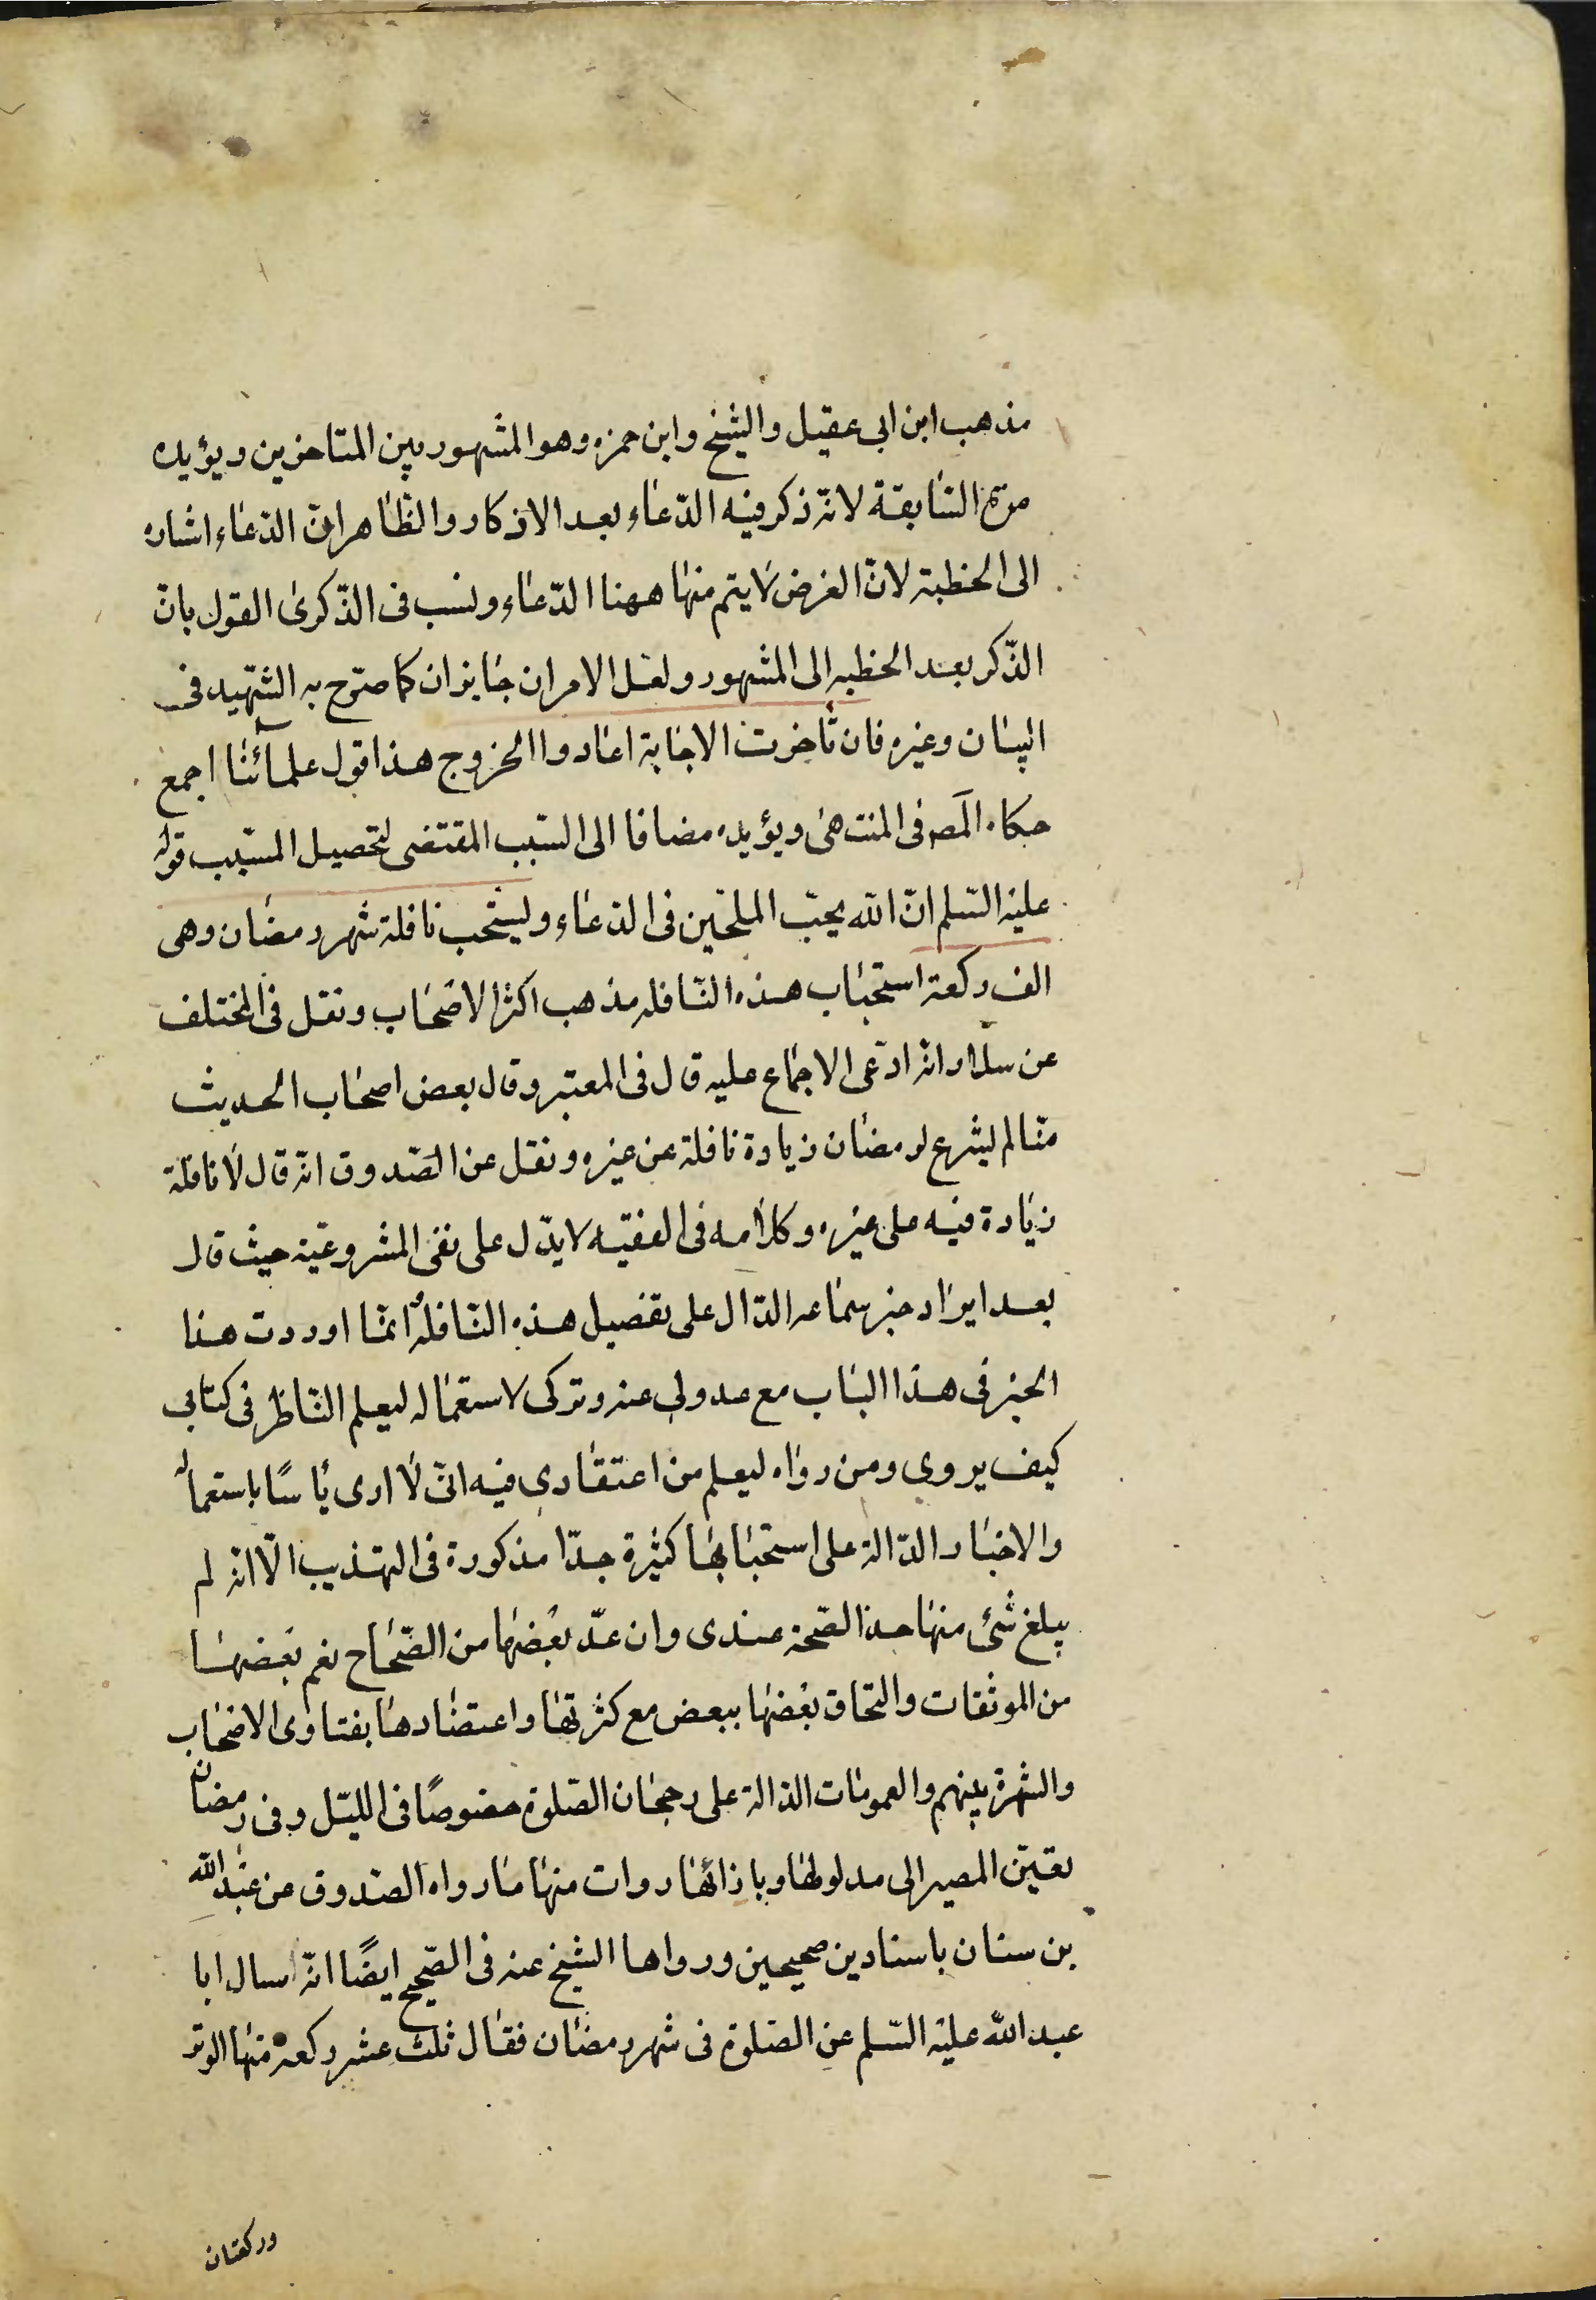 مذهب ابن ابى عقيل والشيخ وابن حمزه وهو المشهور بين المتاخرين ويؤيده
مرة السابقة لانه ذكر فيه الدعاء بعد الاذكار والظاهر ان الدعاء اشاره
الى الخطبة لان الغرض لا يتم منها ههنا الدعاء ونسب فى الذكرى القول بان
الذكر بعد الخطبه الى المشهور ولعل الامران جايزان كما صرح به الشهيد فى
البيان وغيره فان تأخرت الاجابة اعادوا الخروج هذا قول علمائنا اجمع
حكاه المصَ فى المنتهى ويؤيده مضافا الى السبب المقتضى لتحصيل المسبب قوله
عليه السلم ان الله يحب الملحين فى الدعاء ويستحب نافلة شهر رمضان وهى
الف ركعة استحباب هذه النافله مذهب اكثر الاصحاب ونقل فى المختلف
عن سلار انه ادعى الاجماع عليه قال فى المعتبر وقال بعض اصحاب الحديث
منا لم يشرع لرمضان زيادة نافلة عن غيره ونقل عن الصدوق انه قال لا نافلة
زيادة فيه على غيره وكلامه فى الفقيه لا يدل على نفى المشروعية حيث قال
بعد ايراد خبر سماعه الدال على تفصيل هذه النافله انما اوردت هذا
الخبر فى هذا الباب مع عدولى عنه وتركى لاستعماله ليعلم الناظر فى كتابى
كيف يروى ومن رواه ليعلم من اعتقادى فيه انى لا ارى بأسًا باستعماله
والاخبار الدالة على استحبابها كثيرة جدّا مذكورة فى التهذيب الّا انه لم
يبلغ شئ منها حد الصحة عندى وان عدّ بعضها من الصحاح نعم بعضها
من الموثقات والتحاق بعضها ببعض مع كثرتها واعتضادها بفتاوى الاصحاب
والشهرة بينهم والعمومات الدالة على رجحان الصلوة خصوصًا فى الليل وفى رمضان
يعين المصير الى مدلولها وبازائها روات منها ما رواه الصدوق عن عبد الله
بن سنان باسنادين صحيحين ورواها الشيخ عنه فى الصحيح ايضًا انه سال ابا
عبد الله عليه السلم عن الصلوة فى شهر رمضان فقال ثلث عشر ركعة منها الوتر
وركعتان